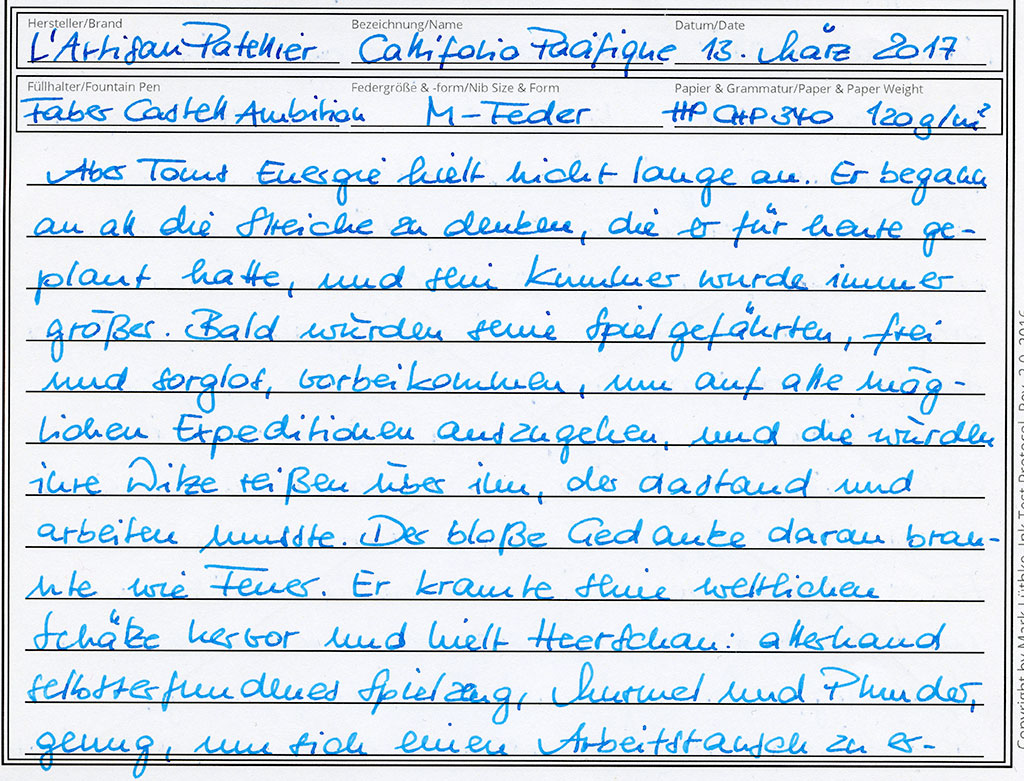 Hersteller/Brand Bezeichnung/Name Datum/Date
L'Artisan Pastellier Callifolio Pacifique 13. März 2017
Füllhalter/Fountain Pen Federgröße & -form/Nib Size & Form Papier & Grammatur/Paper & Paper Weight
Faber Castell Ambition M-Feder HP CHP340 120g/m²
Aber Toms Energie hielt nicht lange an. Er begann
an all die Streiche zu denken, die er für heute ge-
plant hatte, und sein Kummer wurde immer
größer. Bald würden seine Spielgefährten, frei
und sorglos, vorbeikommen, um auf alle mög-
lichen Expeditionen auszugehen, und die würden
ihre Witze reißen über ihn, der dastand und
arbeiten musste. Der bloße Gedanke daran bran-
nte wie Feuer. Er kramte seine weltlichen
Schätze hervor und hielt Heerschau: allerhand
selbsterfundenes Spielzeug, Murmel und Plunder,
genug, um sich einen Arbeitstausch zu er-
Copyright by Mark Lüthke Ink Test Protocol Rev. 3.0 2016